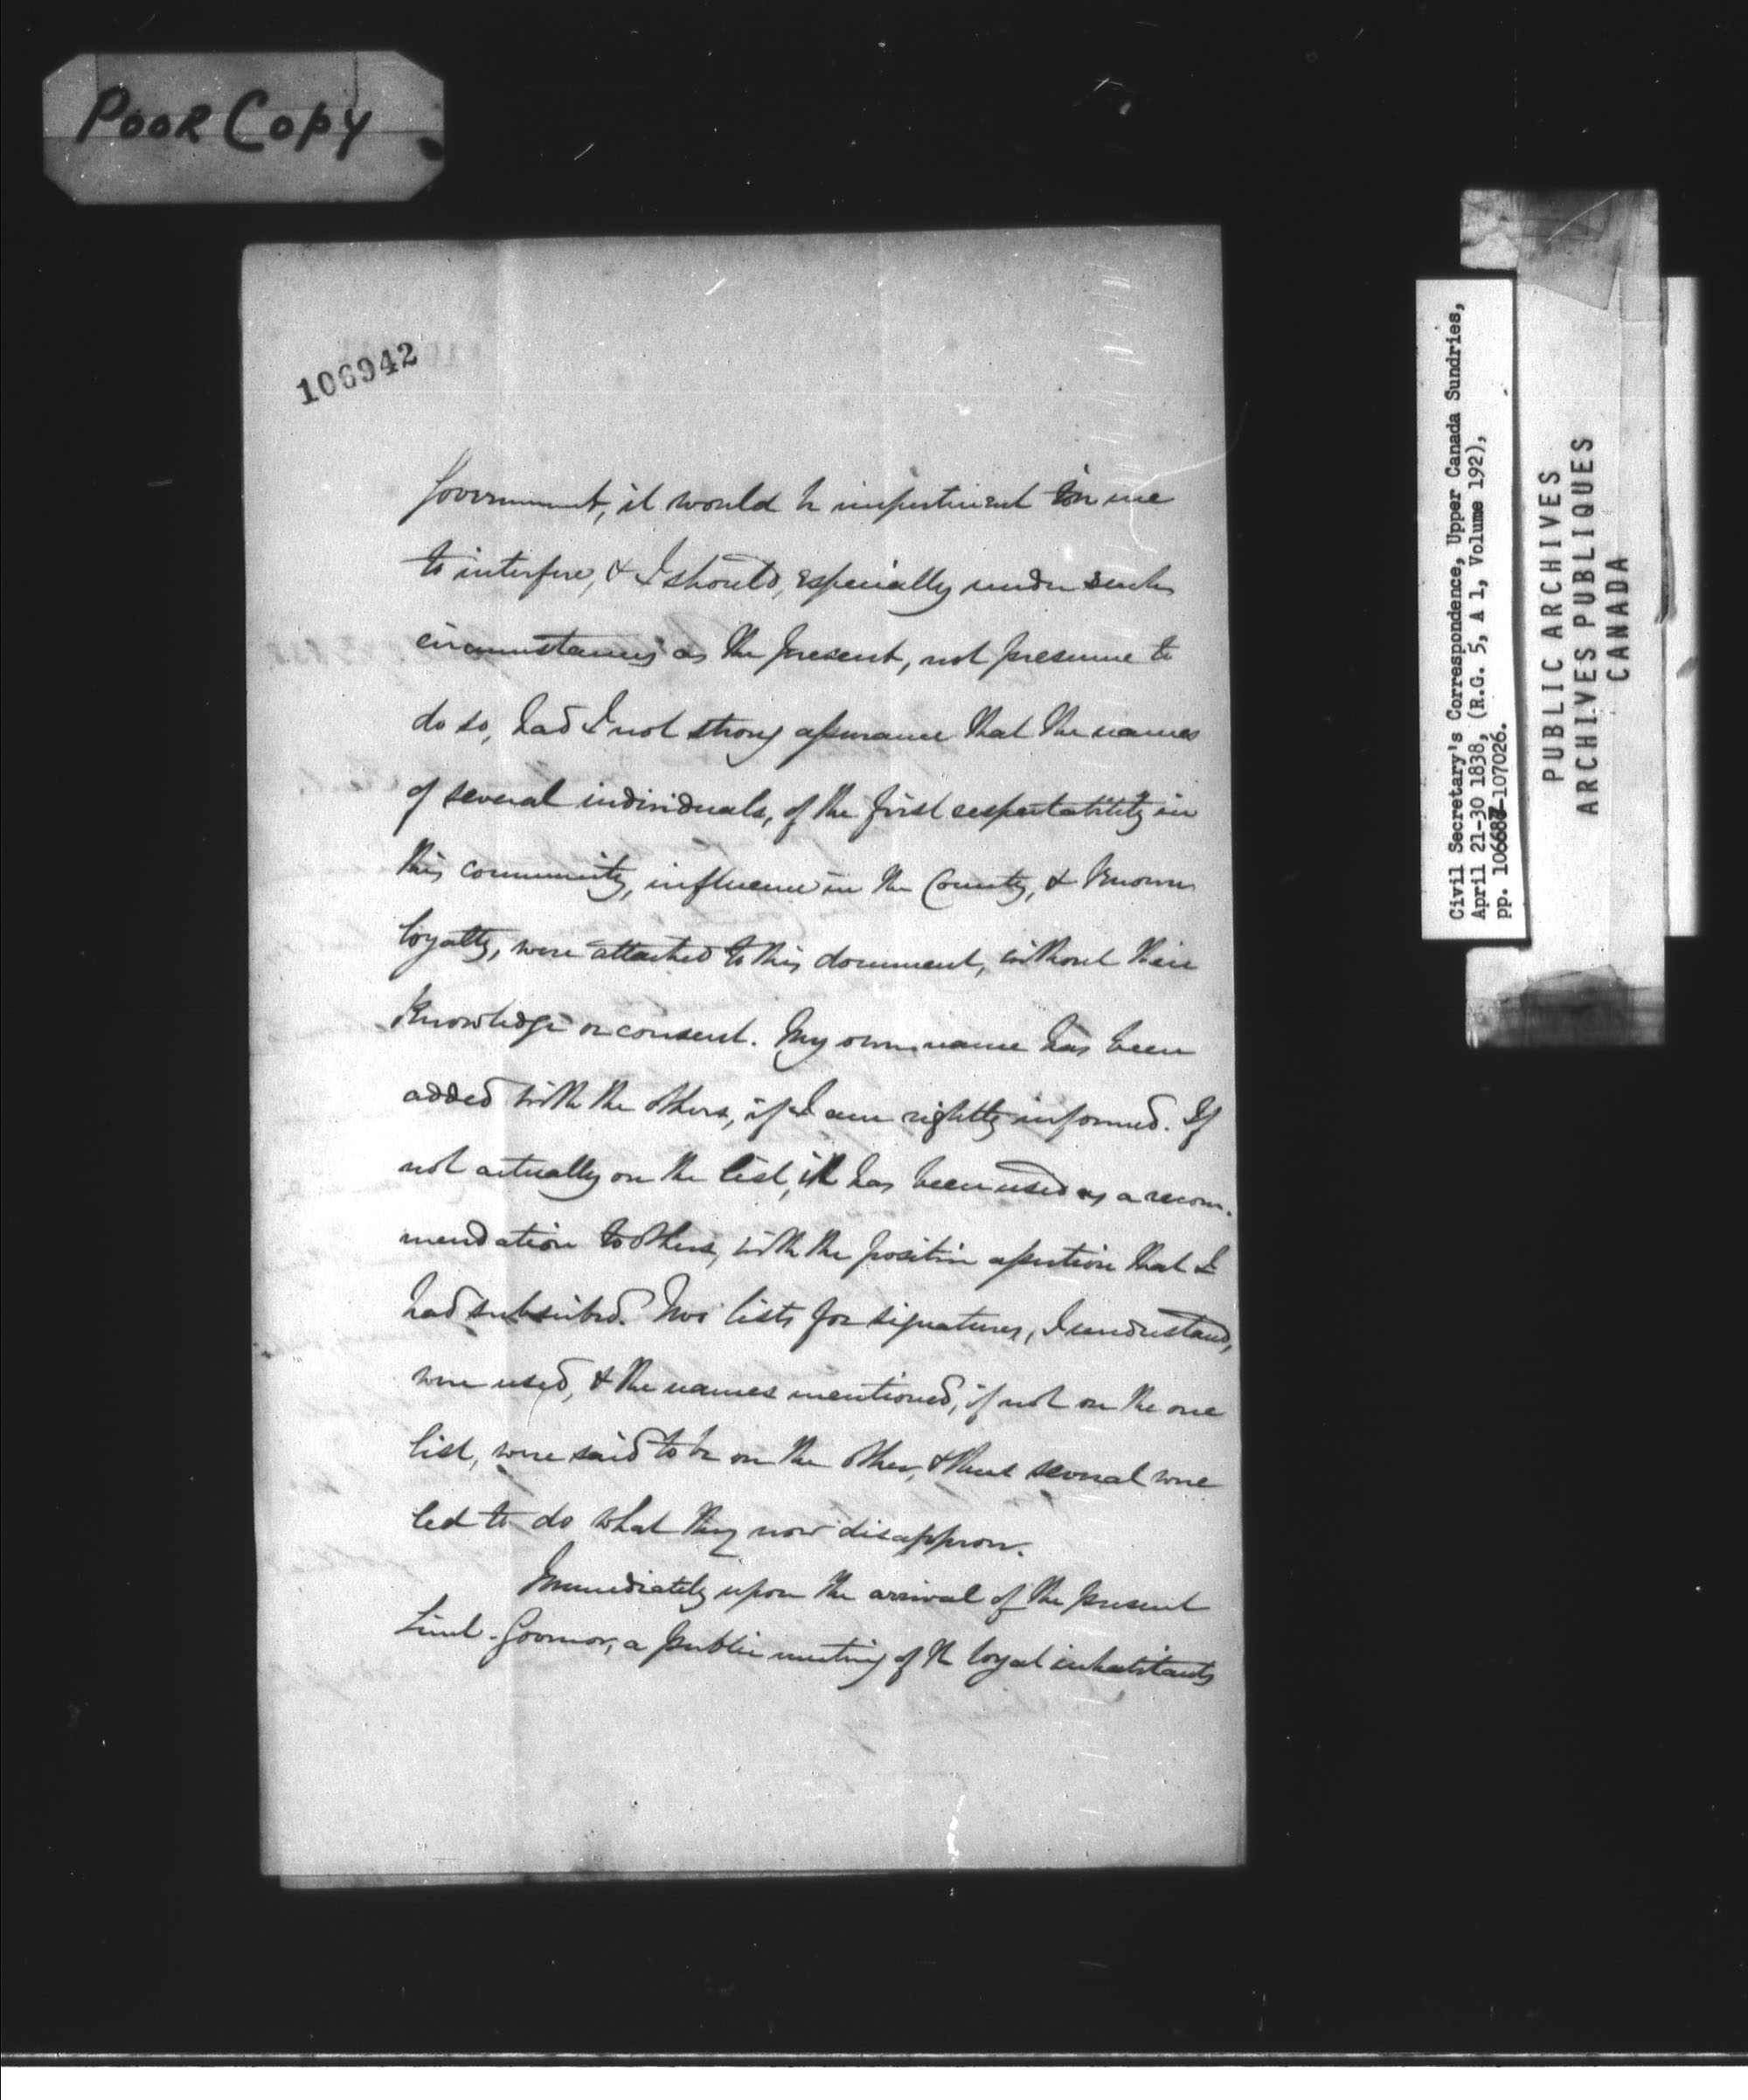 POOR COPY
106942
Government, it would be impertinent in me
to interfere, & I should, especially under such
circumstances as the present, not presume to
do so, had I not strong assurance that the names
of several individuals, of the first respectability in
this community, influence in the County, & known
loyalty, were attached to this document, without their
knowledge or consent. My own name has been
added with the others, if I am rightly informed. If
not actually on the list, it has been used as a recom-
mendation to others, with the positive assertion that I
had subscribed. Two lists for signatures, I understand,
were used, & the names mentioned, if not on the one
list, were said to be on the other, & thus several were
led to do what they now disapprove.
Immediately upon the arrival of the present
Lieut. Governor, a public meeting of the loyal inhabitants
Civil Secretary's Correspondence, Upper Canada Sundries,
April 21-30 1838, (R.G. 5, A 1, Volume 192),
pp. 106687-107026.
PUBLIC ARCHIVES
ARCHIVES PUBLIQUES
CANADA